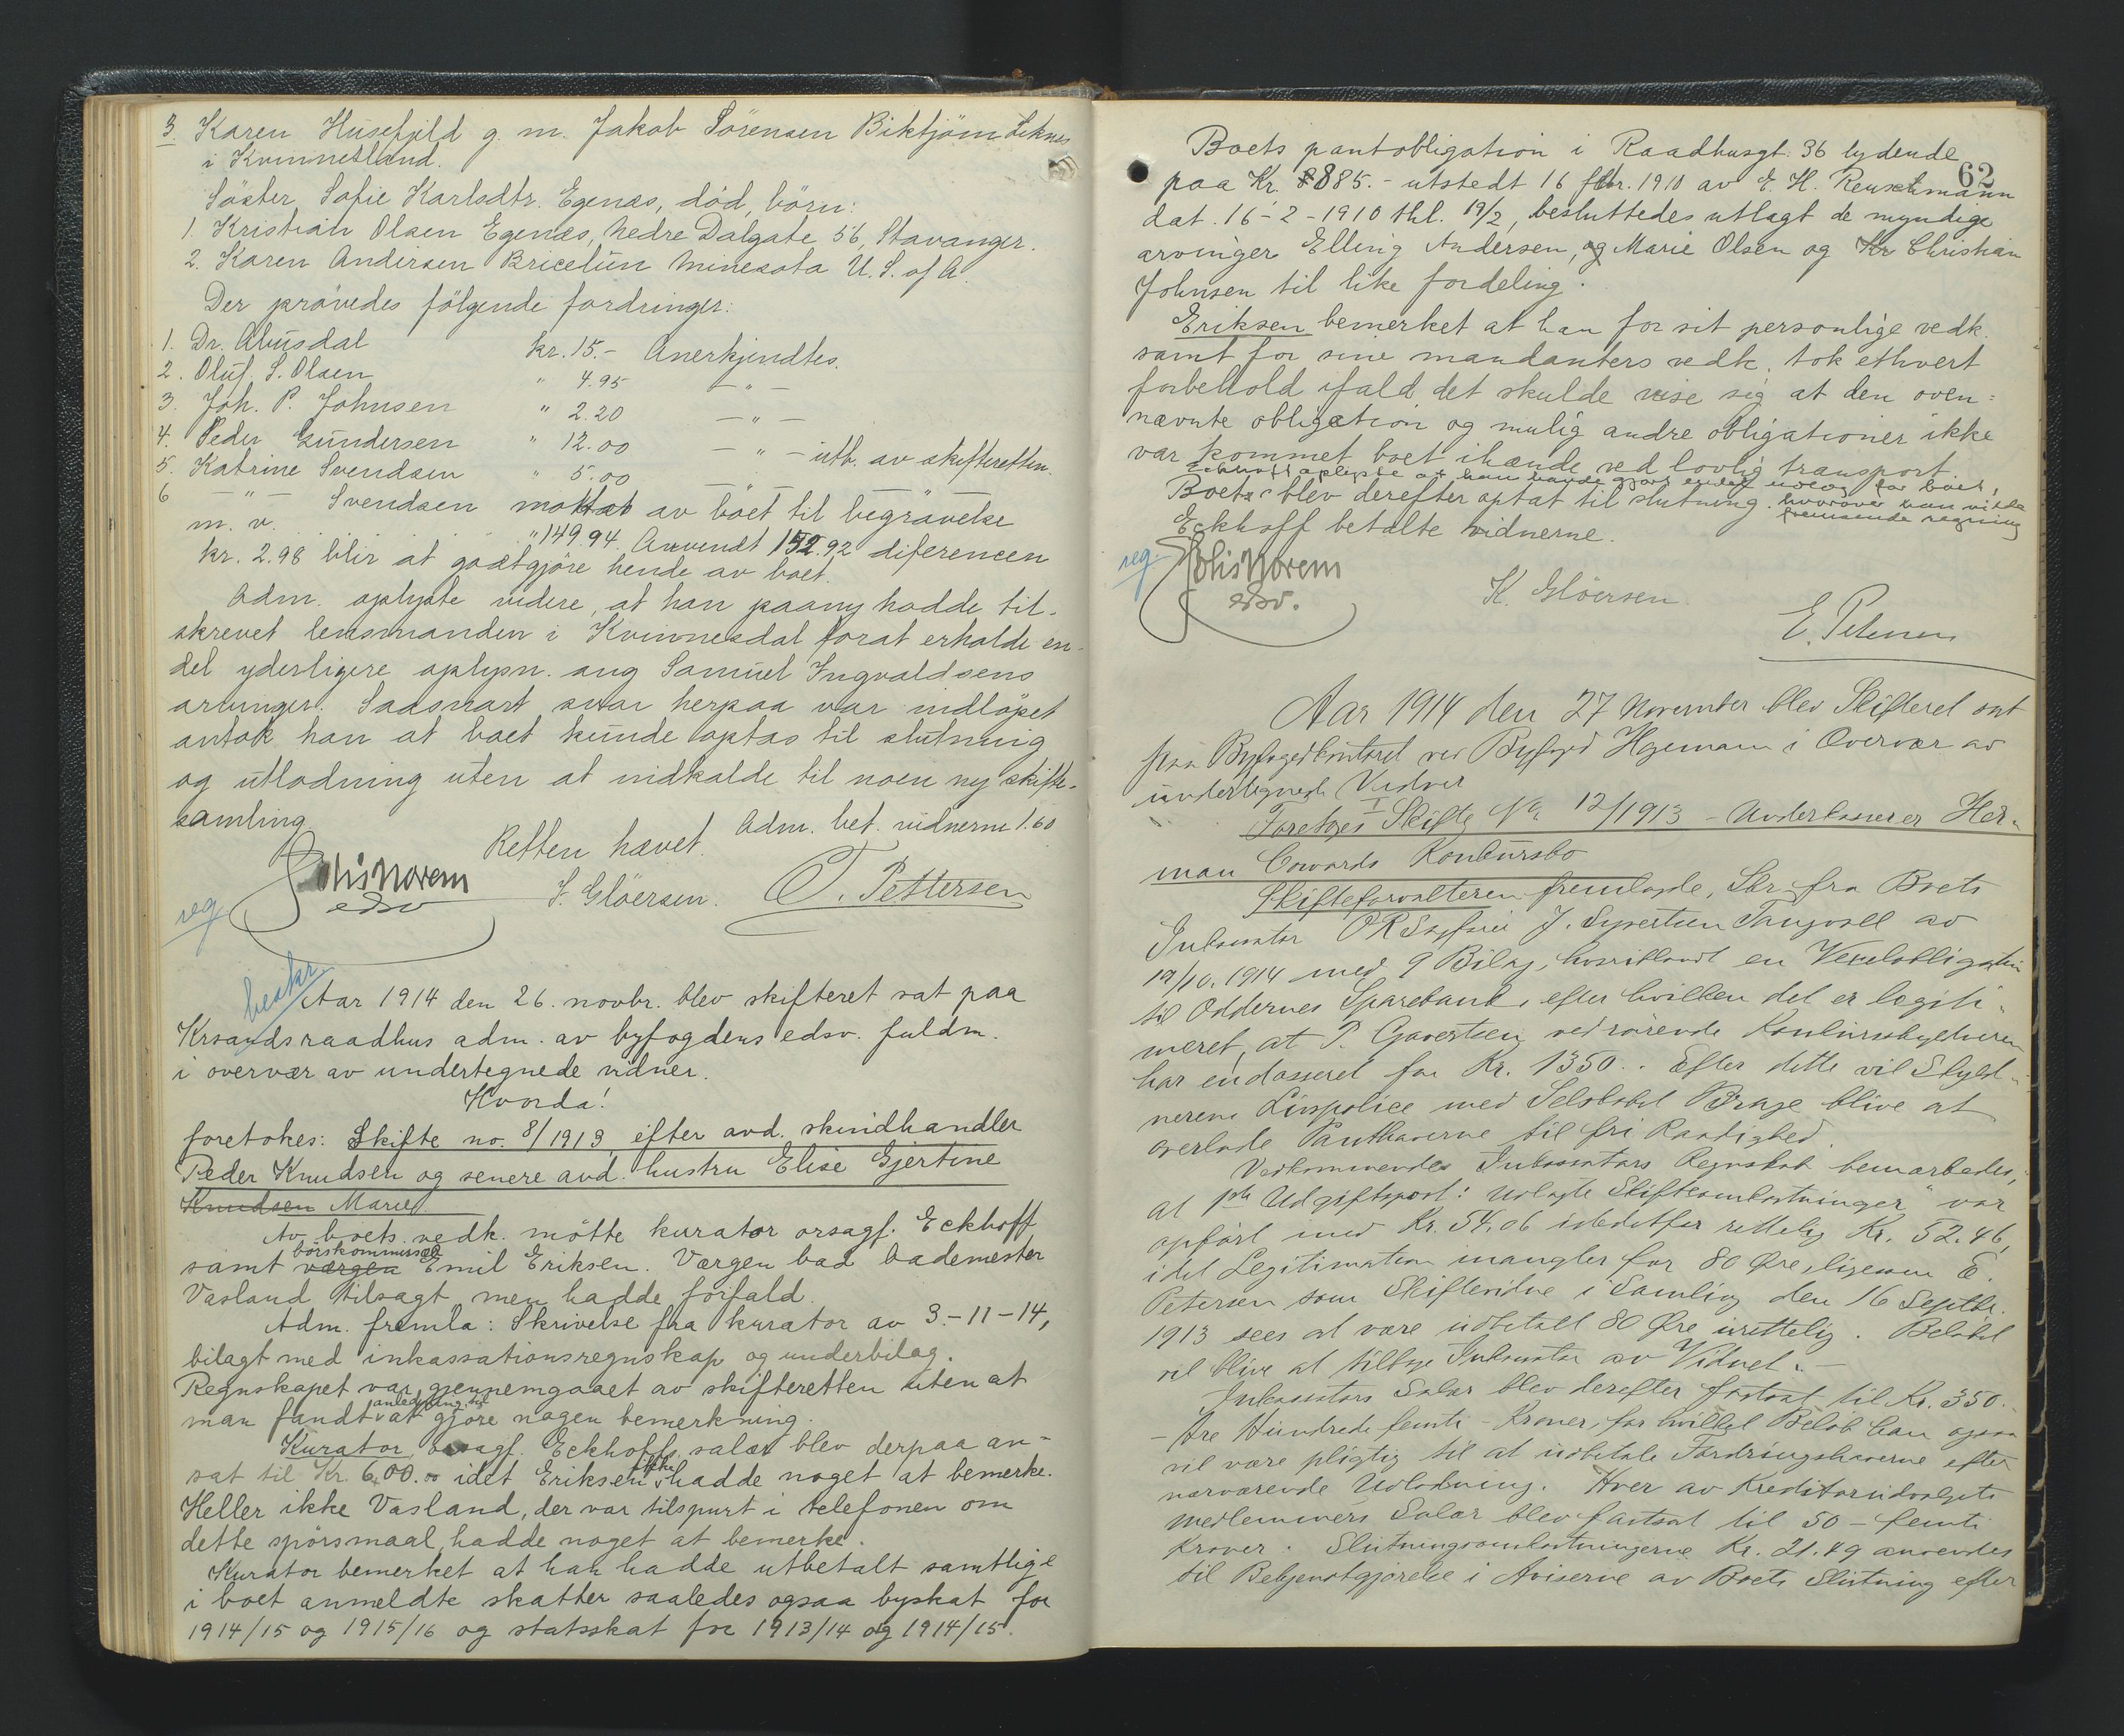 3. Karen Husefjeld g. m. Jakob Sörensen Biktjöm Liknes
i Kvinnesland.
Söster, Sofie Karlsdtr. Egenæs, död, börn:
1. Kristian Olsen Egenæs, Nedre Dalgate 56, Stavanger.
2. Karen Andersen Bricelün Minesota U. S. of A.
Der prövedes fölgende fordringer:
1. Dr. Abusdal kr. 15.- Anerkjendtes.
2. Oluf. S. Olsen " 4.95 - " -
3. Joh. P. Johnsen " 2.20 - " -
4. Peder Gundersen " 12.00 - " - utb. av skifteretten.
5. Katrine Svendsen " 5.00 - " -
6 - " - Svendsen mottat av boet til begravelse
m. v. " 149.94. Anvendt 152.92 diferencen
kr. 2.98 blir at godtgjöre hende av boet.
Adm. oplyste videre, at han paany hadde til-
skrevet lensmanden i Kvinnesdal forat erholde en-
del yderligere oplysn. ang Samuel Ingvaldsens
arvinger. Saasnart svar herpaa var indlöpet
antok han at boet kunde optas til slutning
og utlodning uten at indkalde til noen ny skifte-
samling.
Adm. bet. vidnerne 1.60
Retten hævet.
Johs Norem
edsv
S. Glöersen. T. Pettersen
reg
beskr
Aar 1914 den 26. novbr. blev skifteret sat paa
Krsandsraadhus adm. av byfogdens edsv. fuldm.
i overvær av undertegnede vidner.
Hvorda!
foretokes: Skifte no. 8/1913 efter avd. skindhandler
Peder Knudsen og senere avd. hustru Elise Gjertine
Knudsen Marie
Av boets vedk. mötte kurator orsagf. Eckhoff
börskommissær
samt værgen Emil Eriksen. Værgen bad bademester
Vasland tilsagt men hadde forfald.
Adm. fremla: Skrivelse fra kurator av 3-11-14,
bilagt med inkassationsregnskap og underbilag.
Regnskapet var gjennemgaaet av skifteretten uten at
anledning til
man fandt at gjöre nogen bemerkning.
Kurator orsagf. Eckhoffs salær blev derpaa an-
sat til Kr. 600.00 idet Eriksen ikke hadde noget at bemerke.
Heller ikke Vasland, der var tilspurt i telefonen om
dette spörsmaal, hadde noget at bemerke.
Kurator bemerket at han hadde utbetalt samtlige
i boet anmeldte skatter saaledes ogsaa byskat for
1914/15 og 1915/16 og statsskat for 1913/14 og 1914/15.
62
Boets pantobligation i Raadhusgt. 36 lydende
paa Kr. 885.- utstedt 16 febr. 1910 av E. H. Reuschmann
dat. 16-2-1910 thl. 19/2, besluttedes utlagt de myndige
arvinger Elling Andersen, og Marie Olsen og Kr Christian
Johnsen til like fordeling.
Eriksen bemerket at han for sit personlige vedk.
samt for sine mandanters vedk. tok ethvert
forbehold ifald det skulde vise sig at den oven-
nævnte obligation og mulig andre obligationer ikke
var kommet boet ihænde ved lovlig transport.
Eckhoff oplyste at han havde gjort endel utlæg for boet,
Boet blev derefter optat til slutning. hvorover han vilde
fremsende regning
Eckhoff betalte vidnerne.
reg
Johs Norem
edsv.
K. Glöersen
E. Petersen
Aar 1914 den 27 November blev Skifteret sat
paa Byfogedkontoret ved Byfoged Hagemann i Overvær av
undertegnede Vidner
Foretoges I Skifte No 12/1913 - Underkasserer Her-
man Cowards Konkursbo
Skifteforvalteren fremlagde, Skr. fra Boets
Inkassator ORSagfører J. Syvertsen Tangvall av
19/10. 1914 med 9 Bilag, hvoriblandt en Vexelobligation
til Oddernes Sparebank, efter hvilken det er legiti-
meret, at P. Gavertsen vedrörende Konkursskyldneren
har endosseret for Kr. 1350.. Efter dette vil Skyld-
nerens Livspolice med Selskabet Brage blive at
overlade Panthaverne til fri Raadighed.
Vedkommendes Inkassators Regnskab bemærkedes,
at pk Udgiftspost: "Udlagte Skifteomkostninger" var
opfört med Kr. 54.06 istedetfor rettelig Kr. 52.46,
idet Legitimation mangler for 80 Öre, ligesom E.
Petersen som Skiftevidne i Samling den 16 Septbr.
1913 sees at være udbetalt 80 Öre urettelig. Belöbet
vil blive at tilbage Inkassator av Vidnet.-
Inkassators Salær blev derefter fastsat til Kr. 350.-
- tre Hundrede femti - Kroner, for hvilket Belöb han ogsaa
vil være pligtig til at udbetale Fordringshaverne efter
nærværende Udlodning. Hver av Kreditorudvalgets
Medlemmers Salær blev fastsat til 50 - femti
Kroner. Slutningsomkostningerne Kr. 21.49 anvendes
til Bekjendtgjörelse i Aviserne av Boets Slutning efter